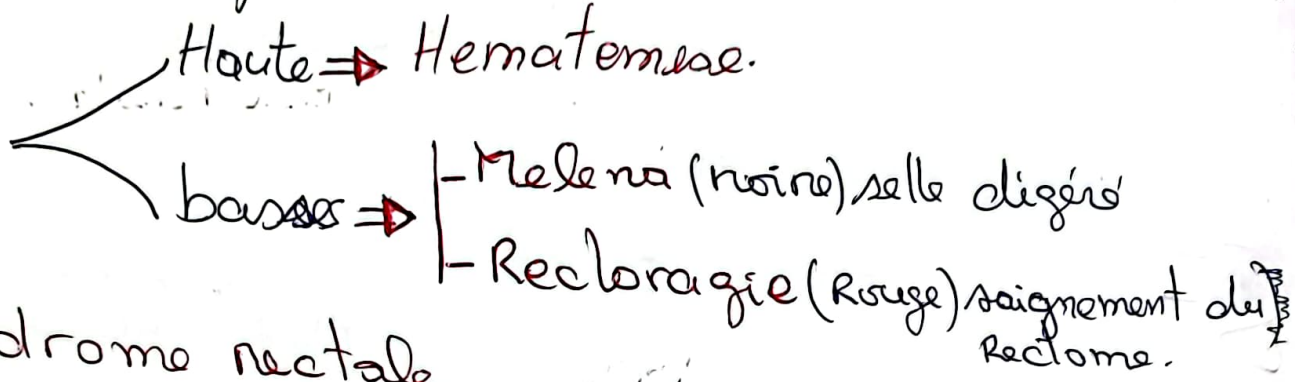 Haute ⇒ Hematemese.
basses ⇒
- Melena (noire) selle digéré
- Rectoragie (Rouge) saignement du
Rectome.
drome rectale